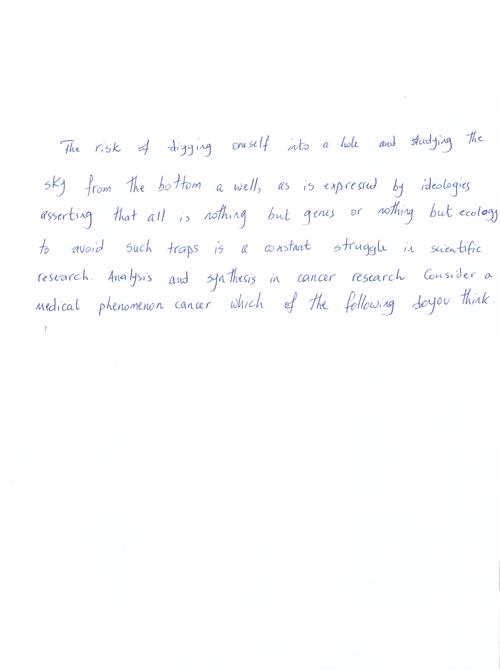 The risk of digging oneself into a hole and studying the
sky from the bottom a well, as is expressed by ideologies
asserting that all is nothing but genes or nothing but ecology
to avoid such traps is a constant struggle in scientific
research. Analysis and synthesis in cancer research Consider a
medical phenomenon cancer which of the following do you think.